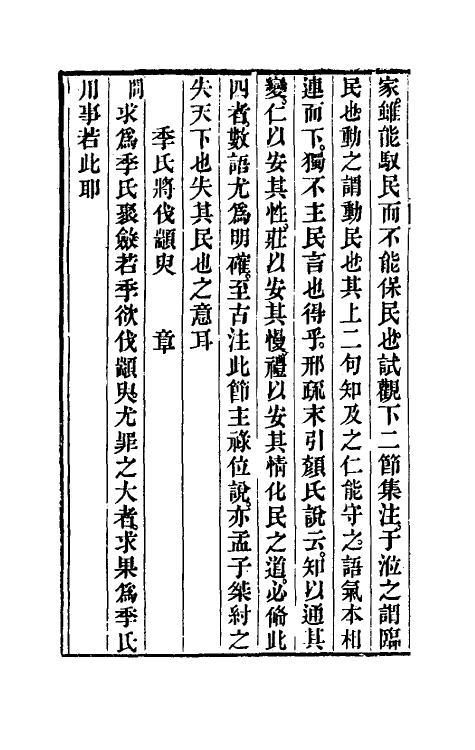 家雖能馭民而不能保民也試觀下二節集注于涖之謂臨
民也動之謂動民也其上二句知及之仁能守之語氣本相
連而下獨不主民言也得乎邢疏末引顏氏說云知以通其
變仁以安其性莊以安其慢禮以安其情化民之道必備此
四者數語尤爲明確至古注此節主祿位說亦孟子桀紂之
失天下也失其民也之意耳
季氏將伐顓臾　章
問求爲季氏聚斂若季欲伐顓臾尤罪之大者求果爲季氏
用事若此耶